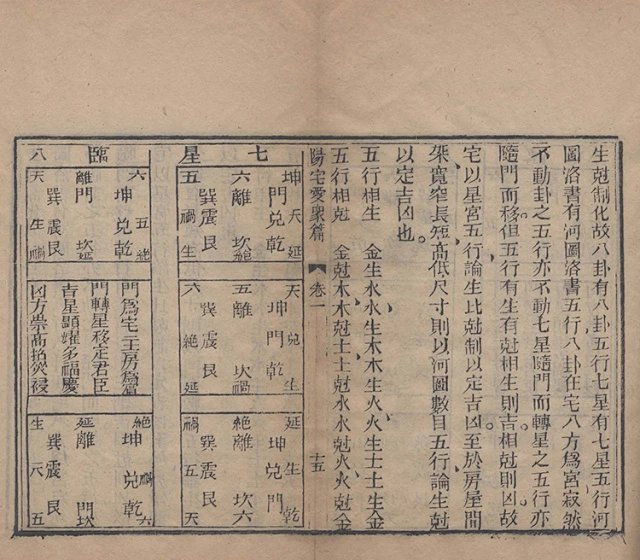 生尅制化故八卦有八卦五行七星有七星五行河
圖洛書有河圖洛書五行八卦在宅八方爲宮寂然
不動卦之五行亦不動七星隨門而轉星之五行亦
隨門而移但五行有生有尅相生則吉相尅則凶故
宅以星宮五行論生比尅制以定吉凶至於房屋間
架寬窄長短高低尺寸則以河圖數目五行論生尅
以定吉凶也
五行相生 金生水水生木木生火火生土土生金
五行相尅 金尅木木尅土土尅水水尅火火尅金
陽宅愛衆篇 卷一 十五
七星臨八
坤 天 延
門兌乾
六離 坎絕
巽震艮
五 禍 生
天 兌 生
坤門乾
五離 坎禍
巽震艮
六 絕 延
延 生 乾
坤兌門
絕離 坎六
巽震艮
禍 五 天
六 五 絕
坤兌乾
離門 坎延
巽震艮
天 生 禍
門爲宅主房爲賓
門轉星移定君臣
吉星顯耀多福慶
凶方崇高招災祲
絕 禍 六
坤兌乾
延離 門坎
巽震艮
生 天 五